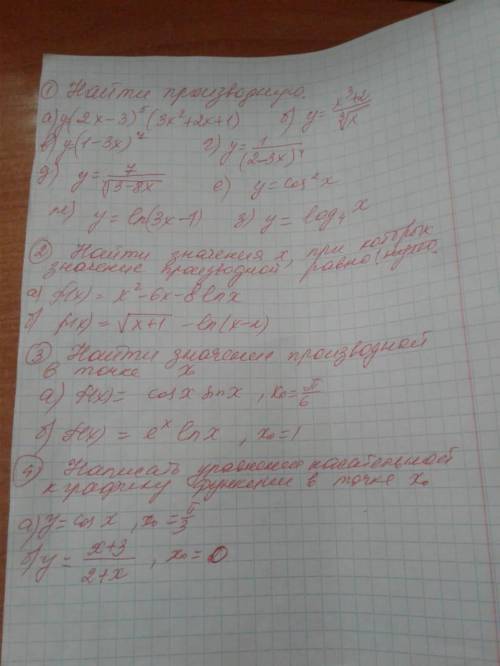 ① Найти производную.
а) y(2x-3)⁵(3x²+2x+1) б) y = (x³+2)/∛x
в) y(1-3x)⁷ г) y = 1/(2-3x)⁴
д) y = 7/√(3-8x) е) y = cos²x
ж) y = ln(3x-1) з) y = log₄x
② Найти значения x, при которых
значение производной равно нулю.
а) f(x) = x²-6x-8lnx
б) f(x) = √(x+1) - ln(x-2)
③ Найти значения производной
в точке x₀
а) f(x) = cosx sinx, x₀ = π/6
б) f(x) = eˣ lnx, x₀ = 1
④ Написать уравнение касательной
к графику функции в точке x₀
а) y = cos x, x₀ = π/3
б) y = (x+3)/(2+x), x₀ = 0